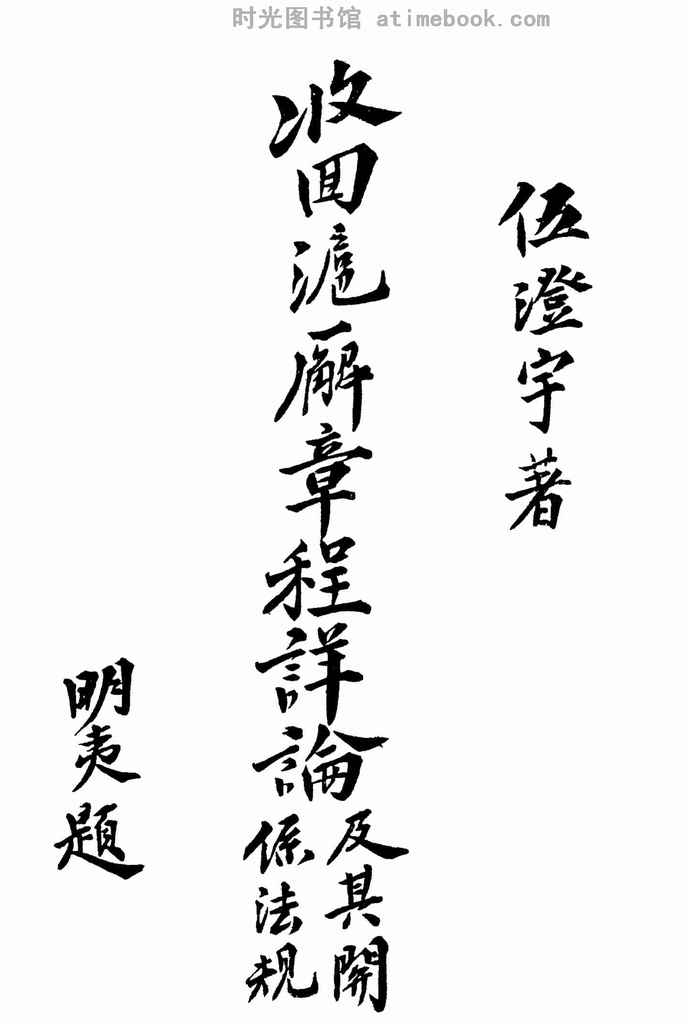 时光图书馆 atimebook.com
伍澄宇著
收回滬廨章程詳論
及其關
係法規
明夷題